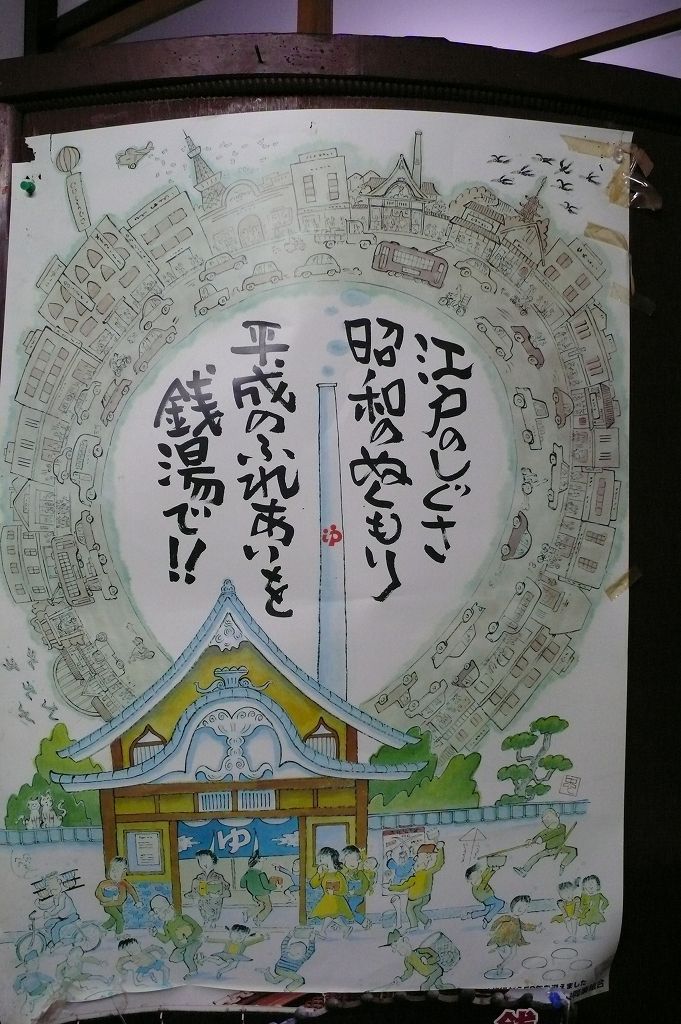 江戸のしぐさ
昭和のぬくもり
平成のふれあいを
銭湯で!!
ゆ
ゆ
銭